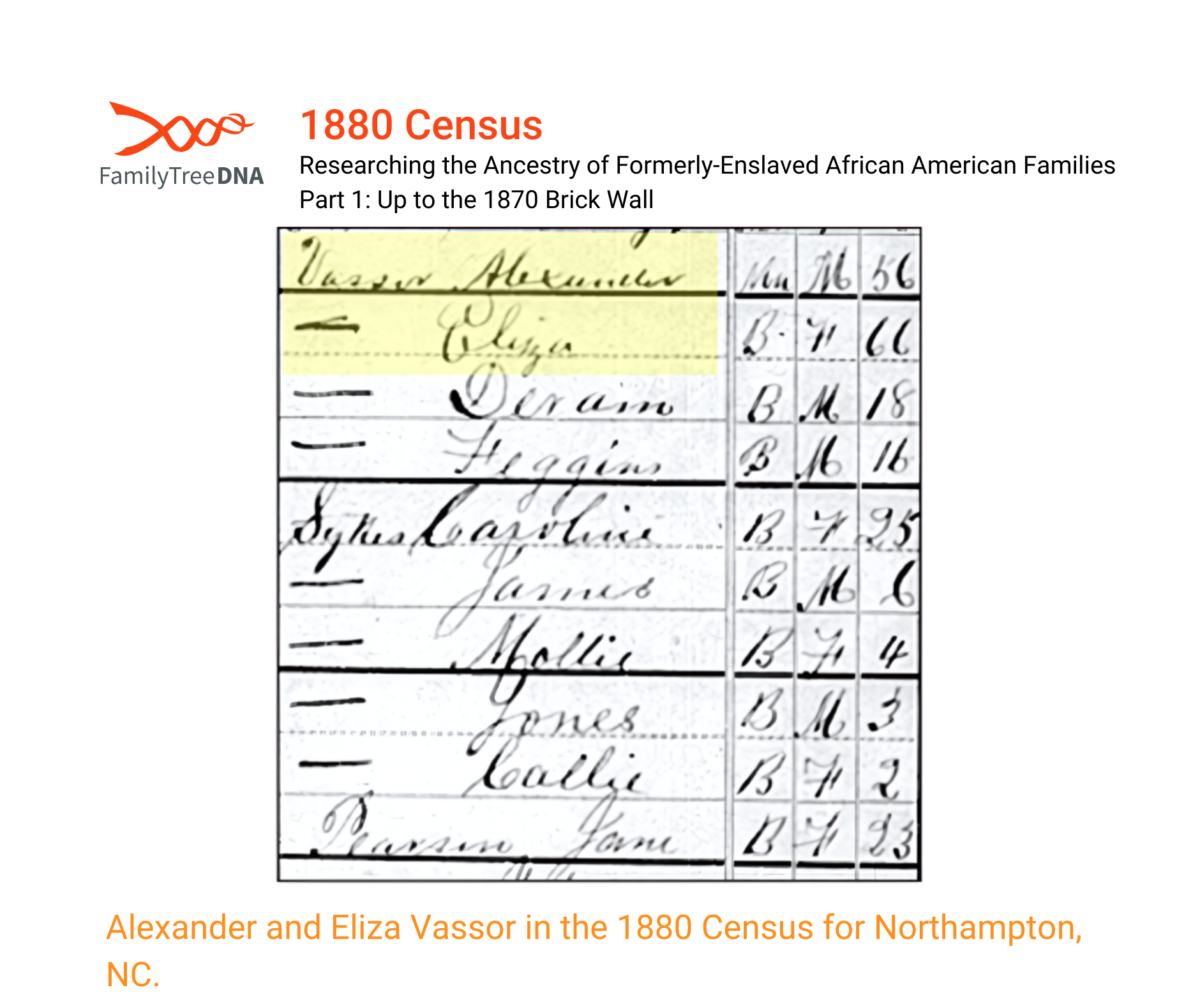 FamilyTreeDNA
1880 Census
Researching the Ancestry of Formerly-Enslaved African American Families
Part 1: Up to the 1870 Brick Wall
Vassor Alexander Mu M 56
— Eliza B F 66
— Deram B M 18
— Feggins B M 16
Sykes Caroline B F 25
— James B M 6
— Mollie B F 4
— Jones B M 3
— Callie B F 2
Pearson Jane B F 23
Alexander and Eliza Vassor in the 1880 Census for Northampton,
NC.